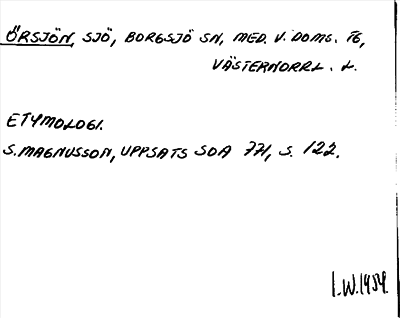 ÖRSJÖN, SJÖ, BORGSJÖ SN, MED. V. DOMS. TG,
VÄSTERNORRL. L.
ETYMOLOGI.
S. MAGNUSSON, UPPSATS SOA 771, S. 122.
I.W. 1954.